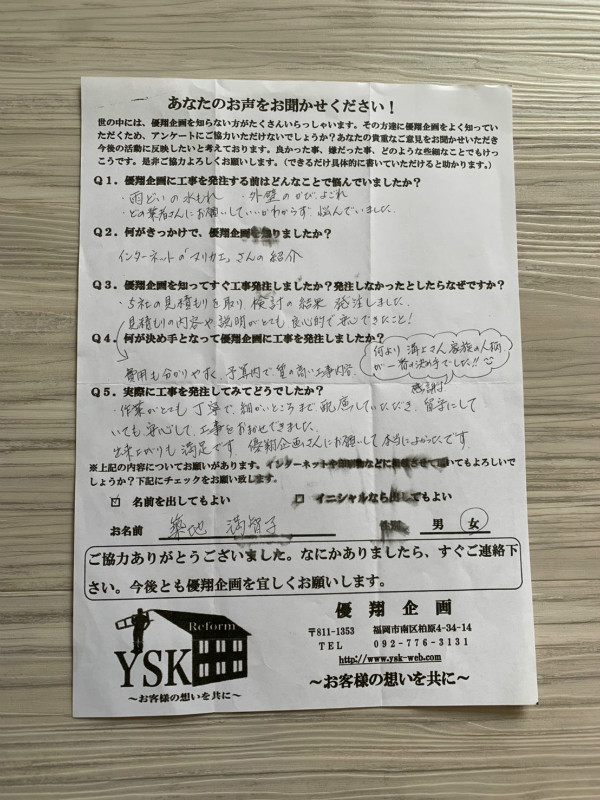 あなたのお声をお聞かせください！
世の中には、優翔企画を知らない方がたくさんいらっしゃいます。その方達に優翔企画をよく知ってい
ただくため、アンケートにご協力いただけないでしょうか？あなたの貴重なご意見をお聞かせいただき
今後の活動に反映したいと考えております。良かった事、嫌だった事、どのような些細なことでもけっ
こうです。是非ご協力よろしくお願いします。（できるだけ具体的に書いていただけると助かります。）
Q1．優翔企画に工事を発注する前はどんなことで悩んでいましたか？
・雨どいの水もれ ・外壁のかび、よごれ
・どの業者さんにお願いしていいかわからず 悩んでいました。
Q2．何がきっかけで、優翔企画を知りましたか？
インターネットの「ヌリカエ」さんの紹介
Q3．優翔企画を知ってすぐ工事発注しましたか？発注しなかったとしたらなぜですか？
・5社の見積もりを取り 検討の結果 発注しました。
見積もりの内容や説明がとても良心的で安心できたこと！
Q4．何が決め手となって優翔企画に工事を発注しましたか？
費用も分かりやすく、予算内で質の高い工事内容。
何より 溝上さん家族の人柄
が一番の決め手でした!!
感謝
Q5．実際に工事を発注してみてどうでしたか？
・作業がとても丁寧で、細かいところまで配慮していただき、留守にして
いても安心して工事をおまかせできました。
出来上がりも満足です。優翔企画さんにお願いして本当によかったです。
※上記の内容についてお願いがあります。インターネットや印刷物などに掲載させて頂いてもよろしいで
しょうか？下記にチェックをお願い致します。
☑ 名前を出してもよい □ イニシャルなら出してもよい
お名前 築地 満智子 性別 男 女
ご協力ありがとうございました。なにかありましたら、すぐご連絡下
さい。今後とも優翔企画を宜しくお願いします。
Reform
YSK
～お客様の想いを共に～
優翔企画
〒811-1353 福岡市南区柏原4-34-14
TEL 092-776-3131
http://www.ysk-web.com
～お客様の想いを共に～